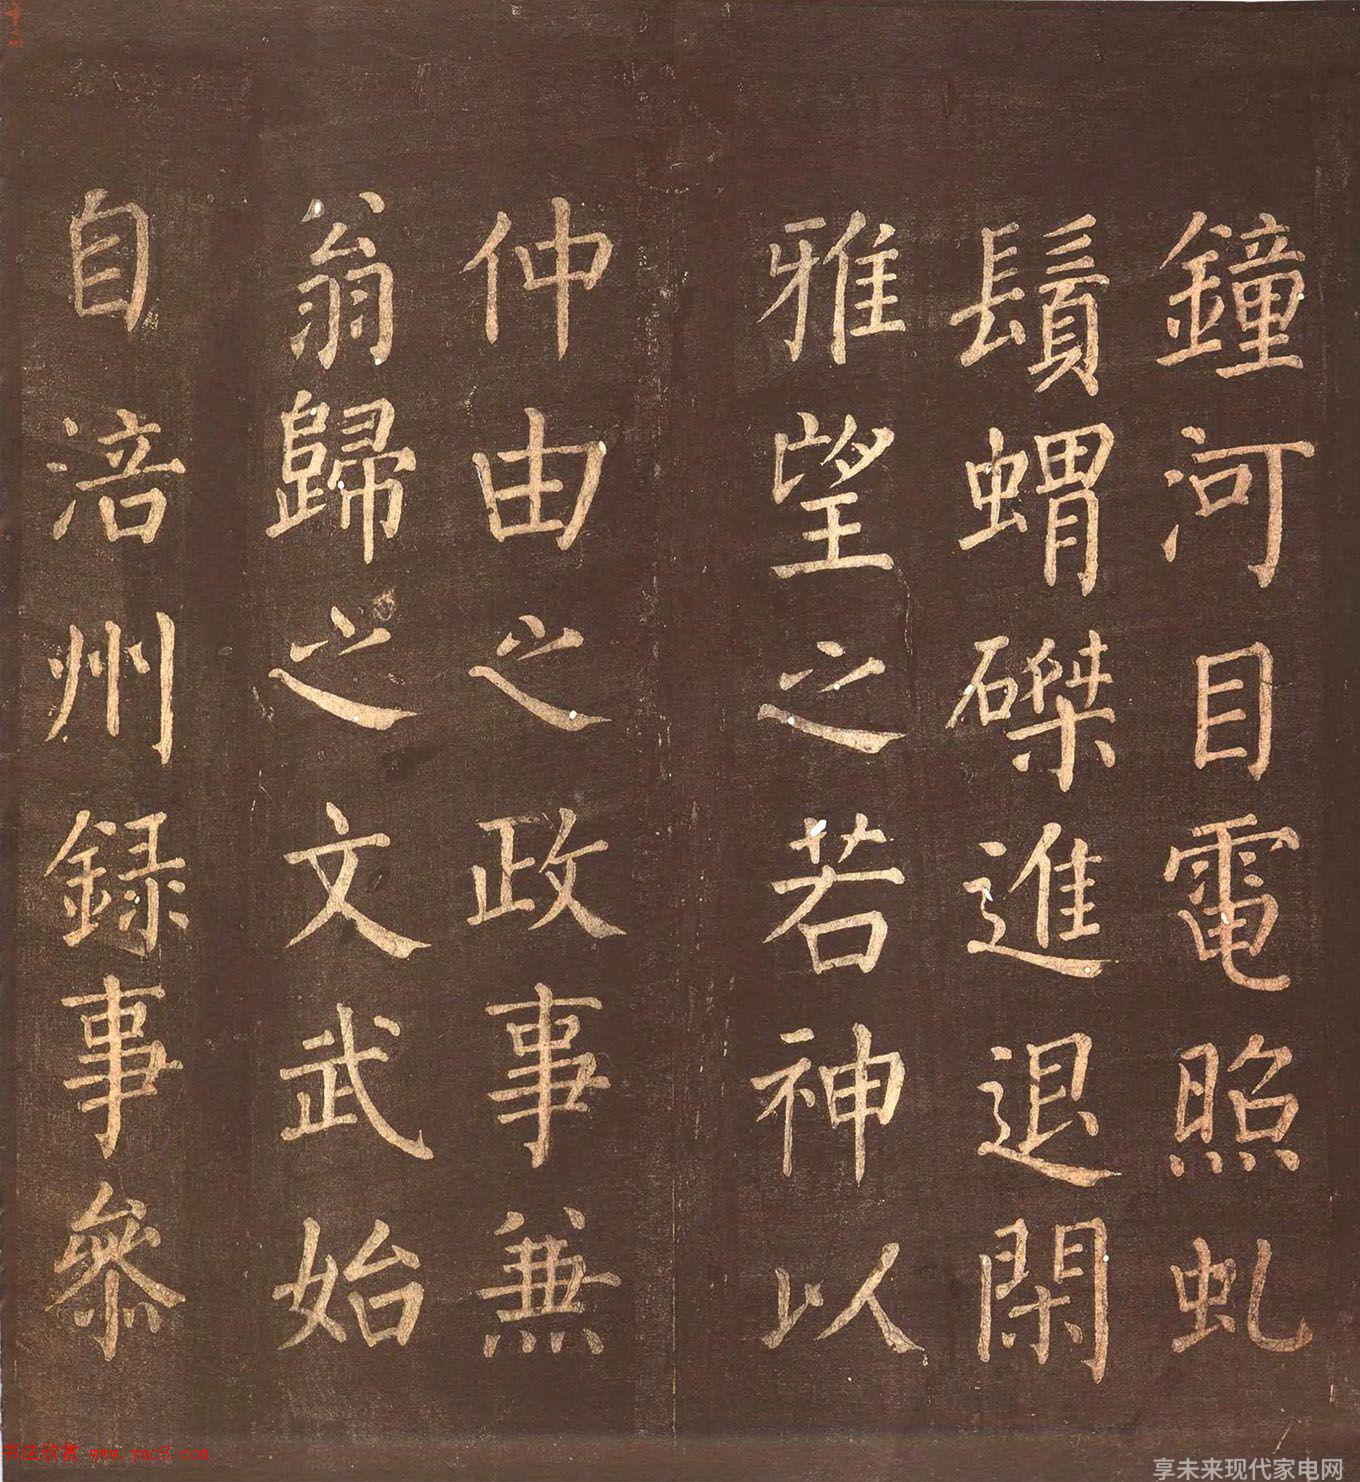 鐘河目電照虬
鬚蝟磔進退閑
雅望之若神以
仲由之政事兼
翁歸之文武始
自涪州録事參
书法欣赏 www.yac8.com
享未来现代家电网